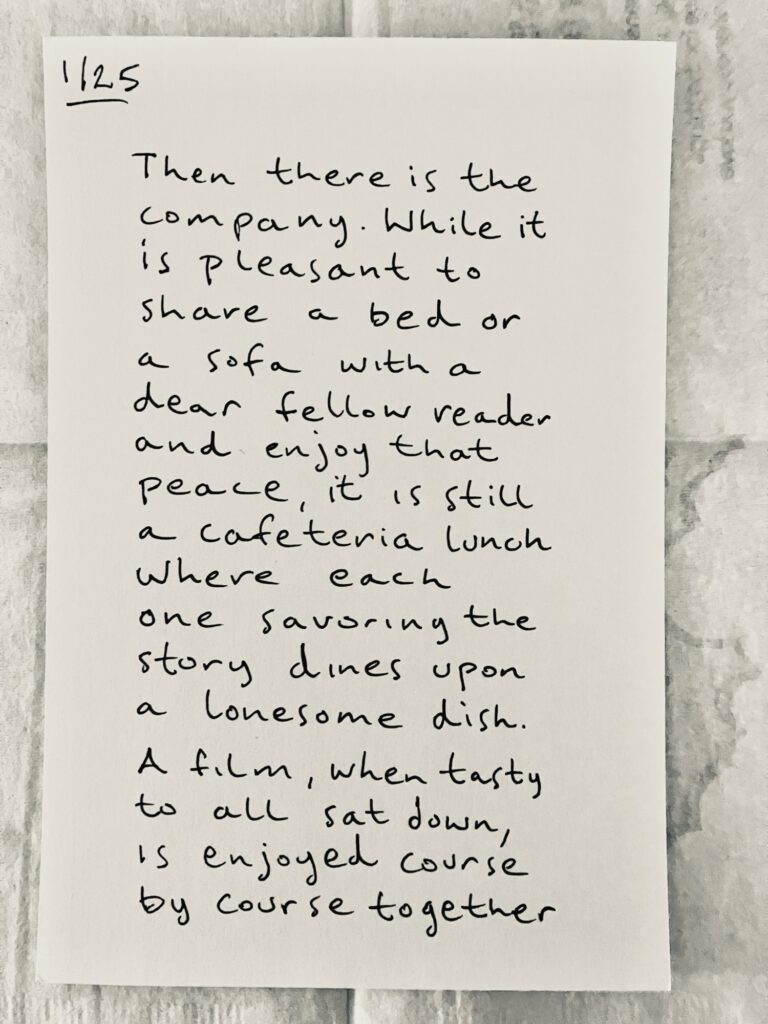 1/25
Then there is the
company. While it
is pleasant to
share a bed or
a sofa with a
dear fellow reader
and enjoy that
peace, it is still
a cafeteria lunch
where each
one savoring the
story dines upon
a lonesome dish.
A film, when tasty
to all sat down,
is enjoyed course
by course together